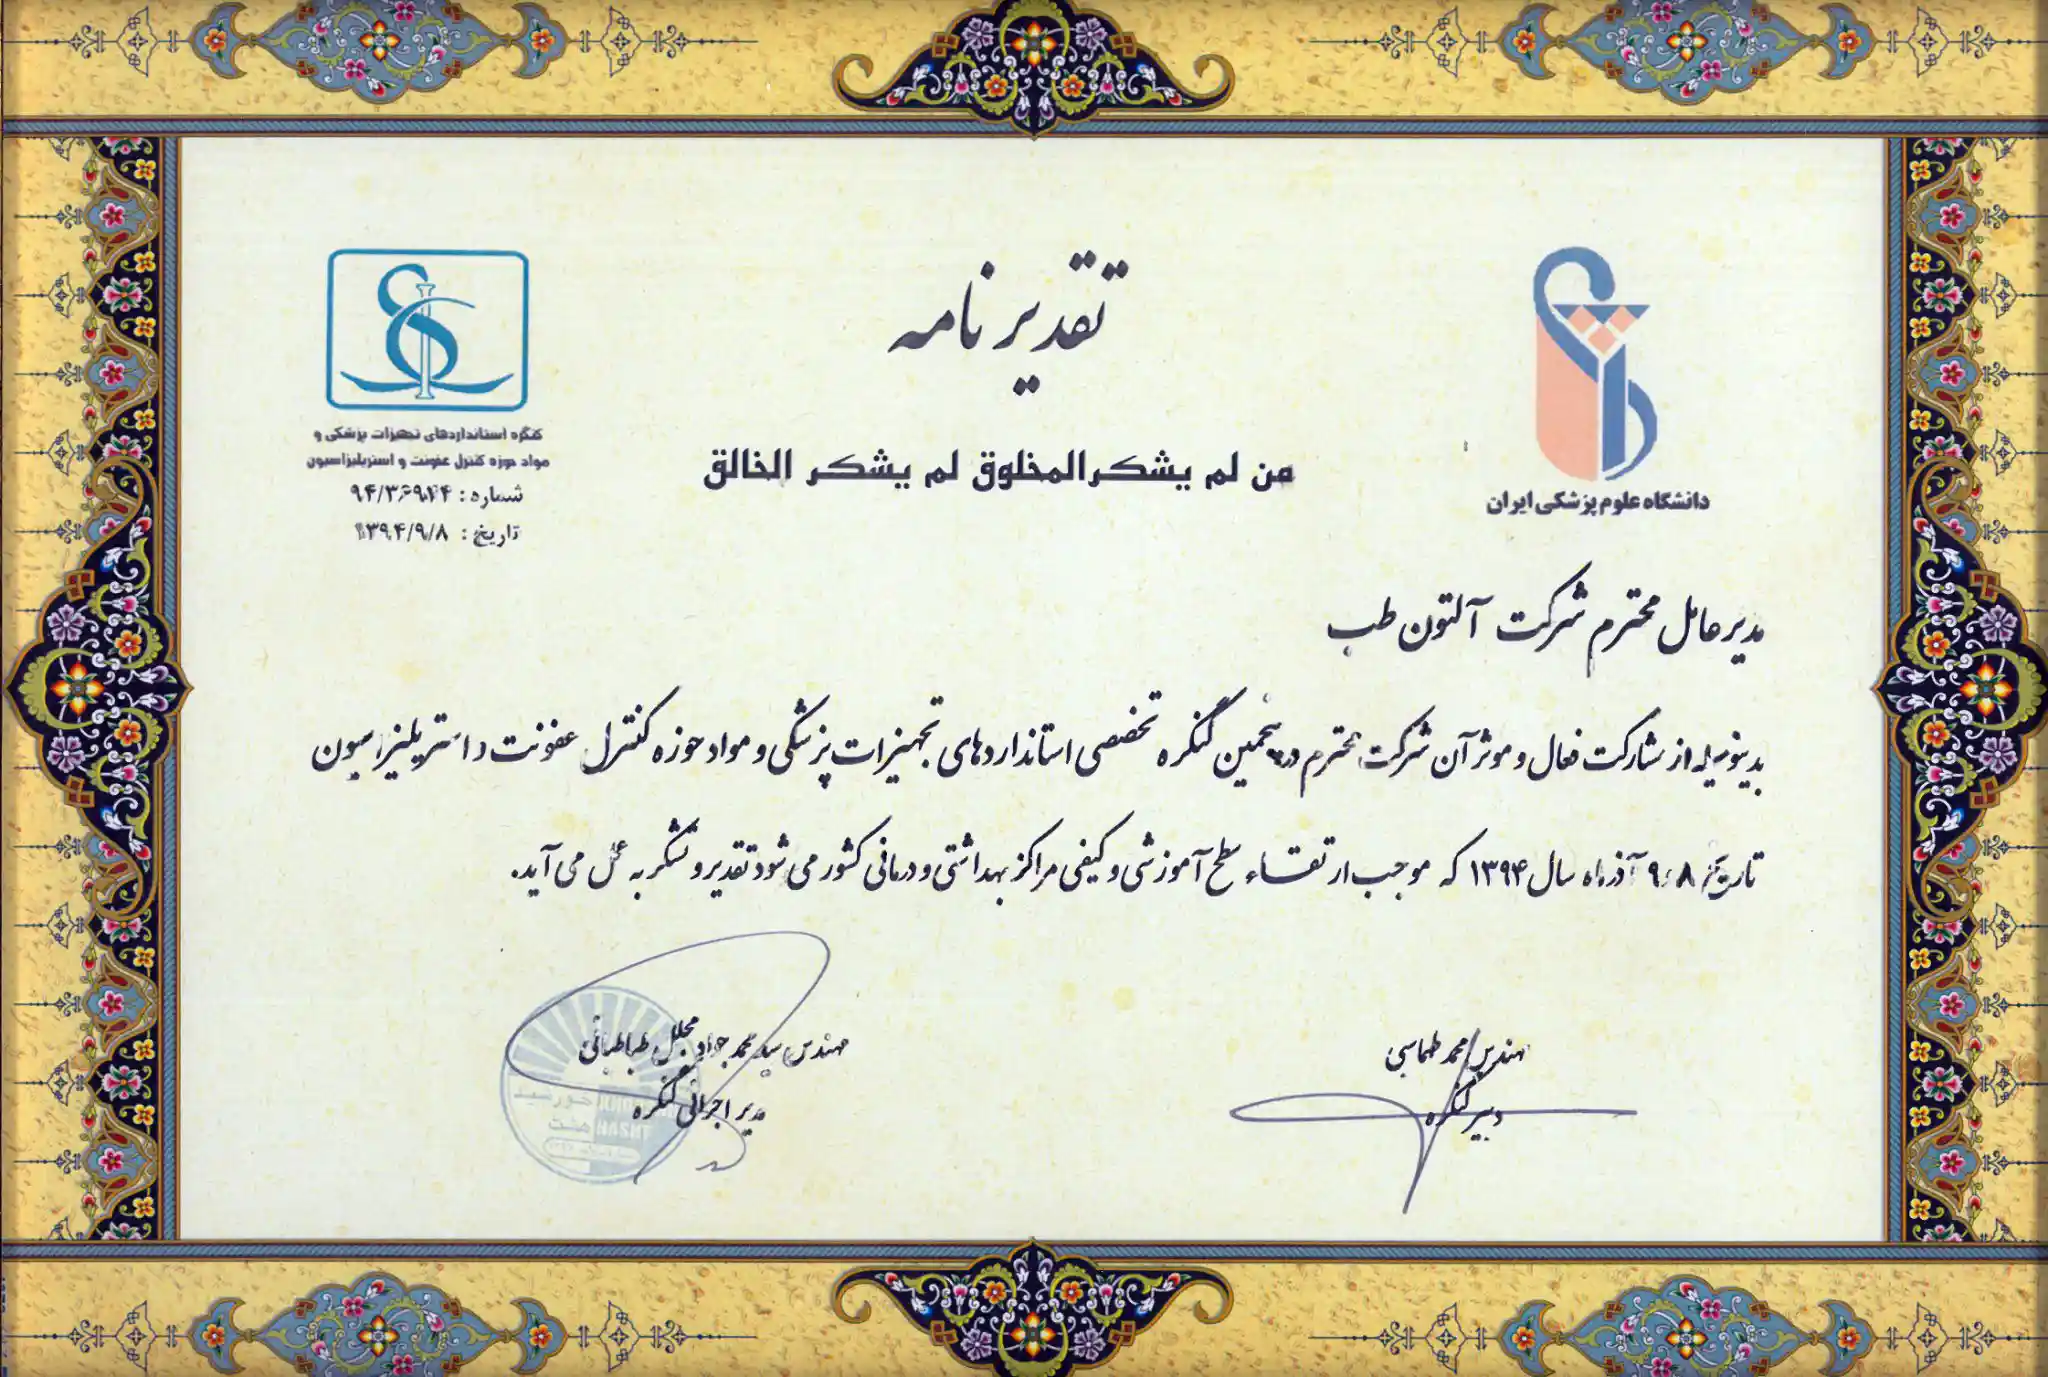 تقدیرنامه
من لم یشکرالمخلوق لم یشکر الخالق
دانشگاه علوم پزشکی ایران
کنگره استانداردهای تجهیزات پزشکی و
مواد حوزه کنترل عفونت و استریلیزاسیون
شماره :
تاریخ : ۱۳۹۴/۹/۸
مدیرعامل محترم شرکت آلتون طب
بدینوسیله از مشارکت فعال و موثر آن شرکت محترم در پنجمین کنگره تخصصی استانداردهای تجهیزات پزشکی و مواد حوزه کنترل عفونت و استریلیزاسیون
تاریخ ۸ و ۹ آذرماه سال ۱۳۹۴ که موجب ارتقاء سطح آموزشی و کیفی مراکز بهداشتی و درمانی کشور می شود تقدیر و تشکر به عمل می آید.
مهندس محمد طهماسبی
دبیر کنگره
مهندس سید محمد جواد مجلل طباطبائی
مدیر اجرائی کنگره